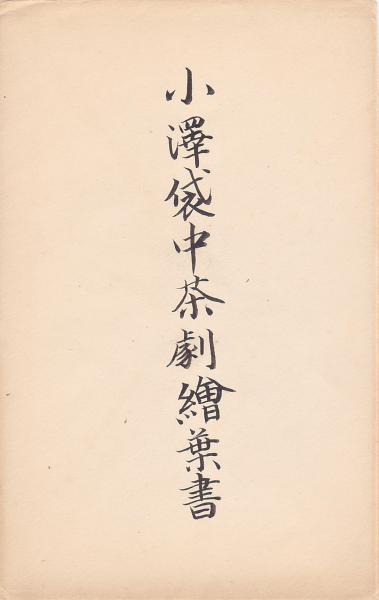 小澤袋中茶劇繪葉書